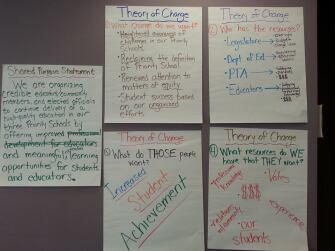 Shared Purpose Statement
We are organizing
credible educators, community
members, and elected officials
to continue delivery of a
high-quality education in our
three Priority Schools by
offering improved professional
development for educators
and meaningful learning
opportunities for students
and educators.
Theory of Change
① What change do we want?
- Heightened awareness of
challenges in our Priority
Schools.
- Reclaiming the definition
of Priority School.
- Renewed attention to
matters of equity.
- Student success based
on our organized
efforts
Theory of Change
② Who has the resources?
- Legislature
- Dept of Ed
- PTA
- Educators
Theory of Change
③ What do THOSE people
want?
Increased
Student
Achievement
Theory of Change
④ What resources do WE
have that THEY want?
Professional
Knowledge
Votes
$$$
relationships
community
experience
our
students